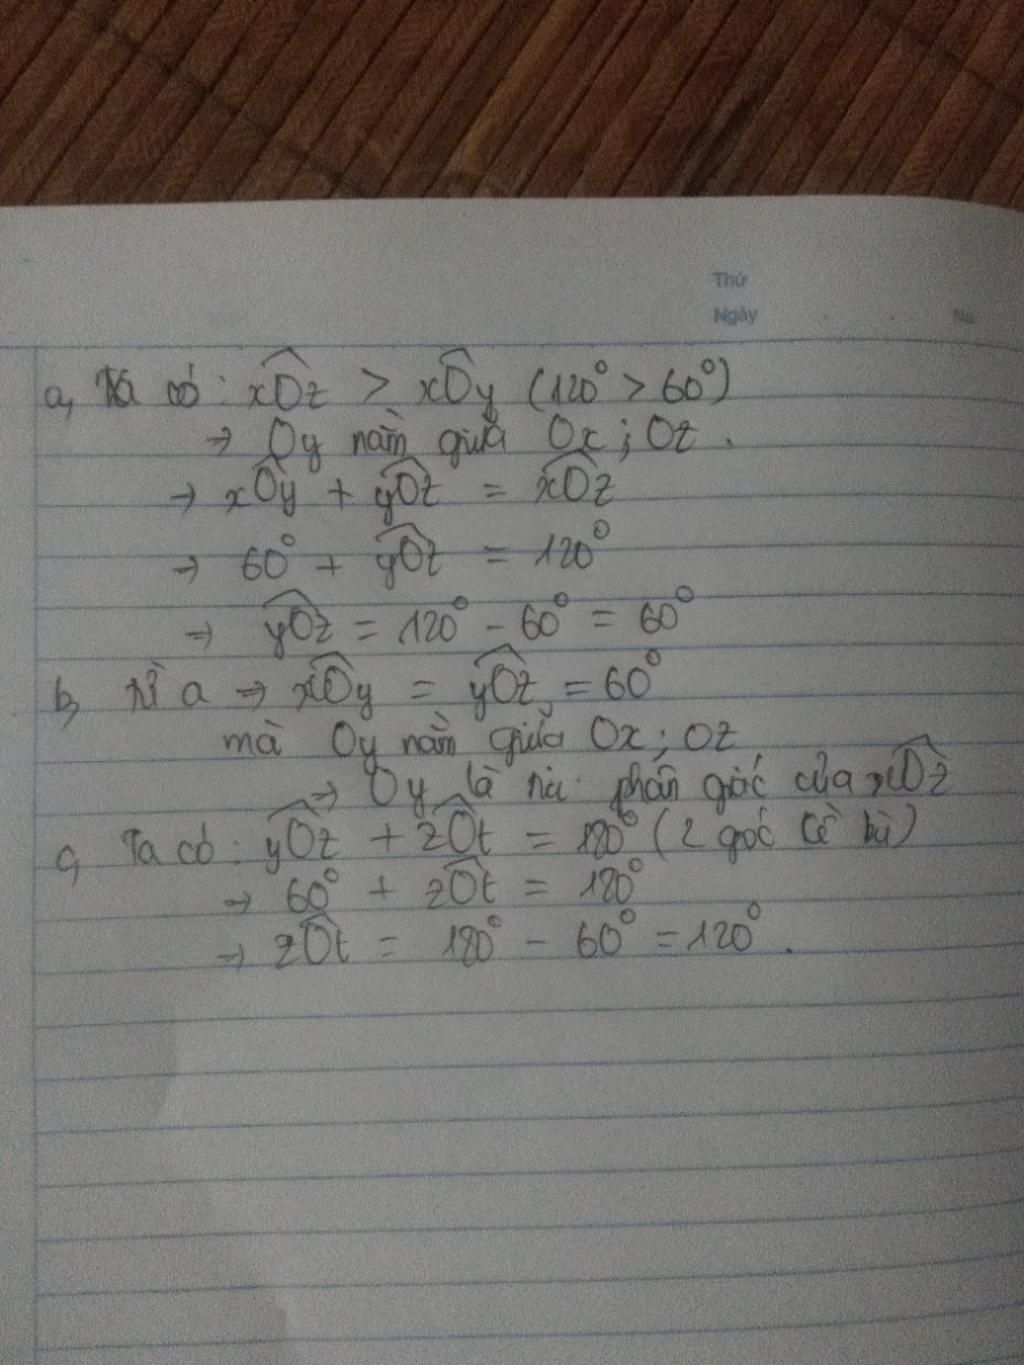 Thứ
Ngày No
a, Ta có: xÔz > xÔy (120° > 60°)
⇒ Oy nằm giữa Ox; Oz.
⇒ xÔy + yÔz = xÔz
⇒ 60° + yÔz = 120°
⇒ yÔz = 120° - 60° = 60°
b, Từ a ⇒ xÔy = yÔz = 60°
mà Oy nằm giữa Ox; Oz
⇒ Oy là tia phân giác của xÔz
c, Ta có: yÔz + zÔt = 180° (2 góc kề bù)
⇒ 60° + zÔt = 180°
⇒ zÔt = 180° - 60° = 120°.